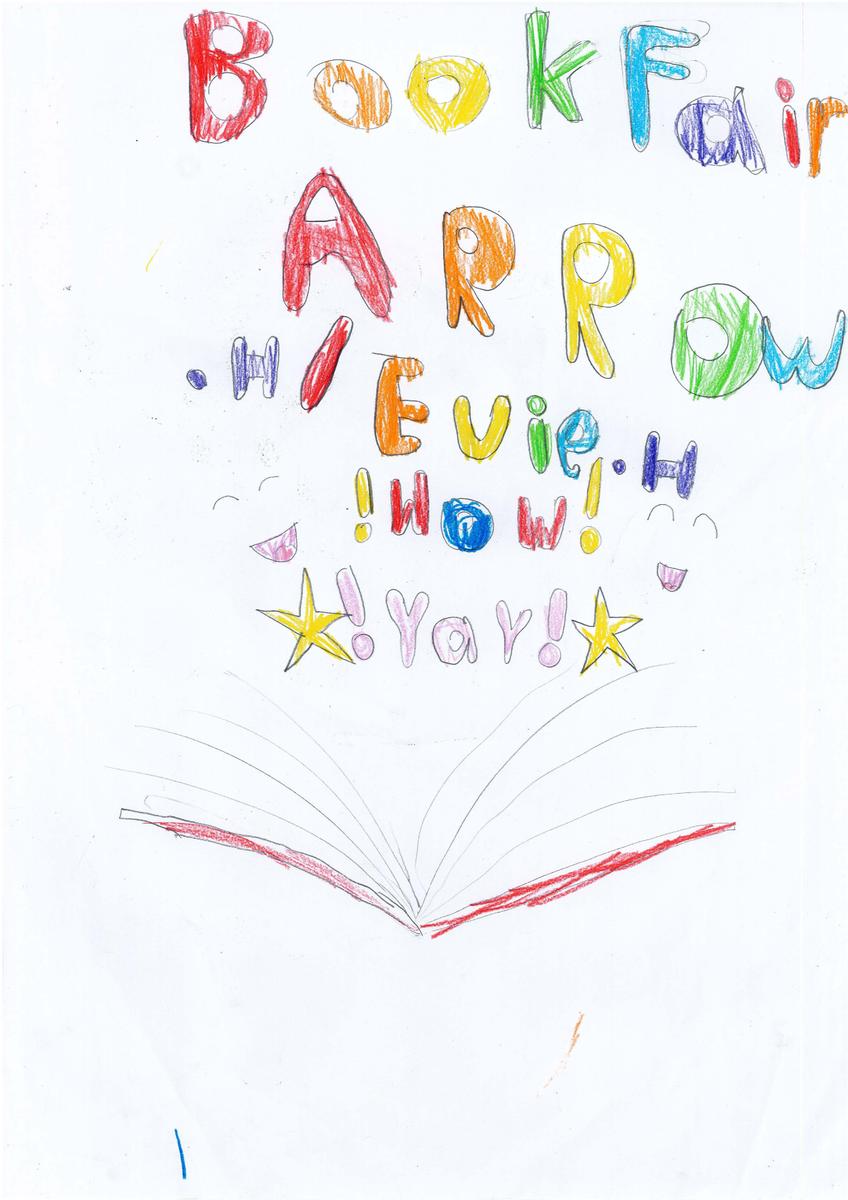 Book Fair
ARROw
.H / Evie.H
!WOW!
!Yay!